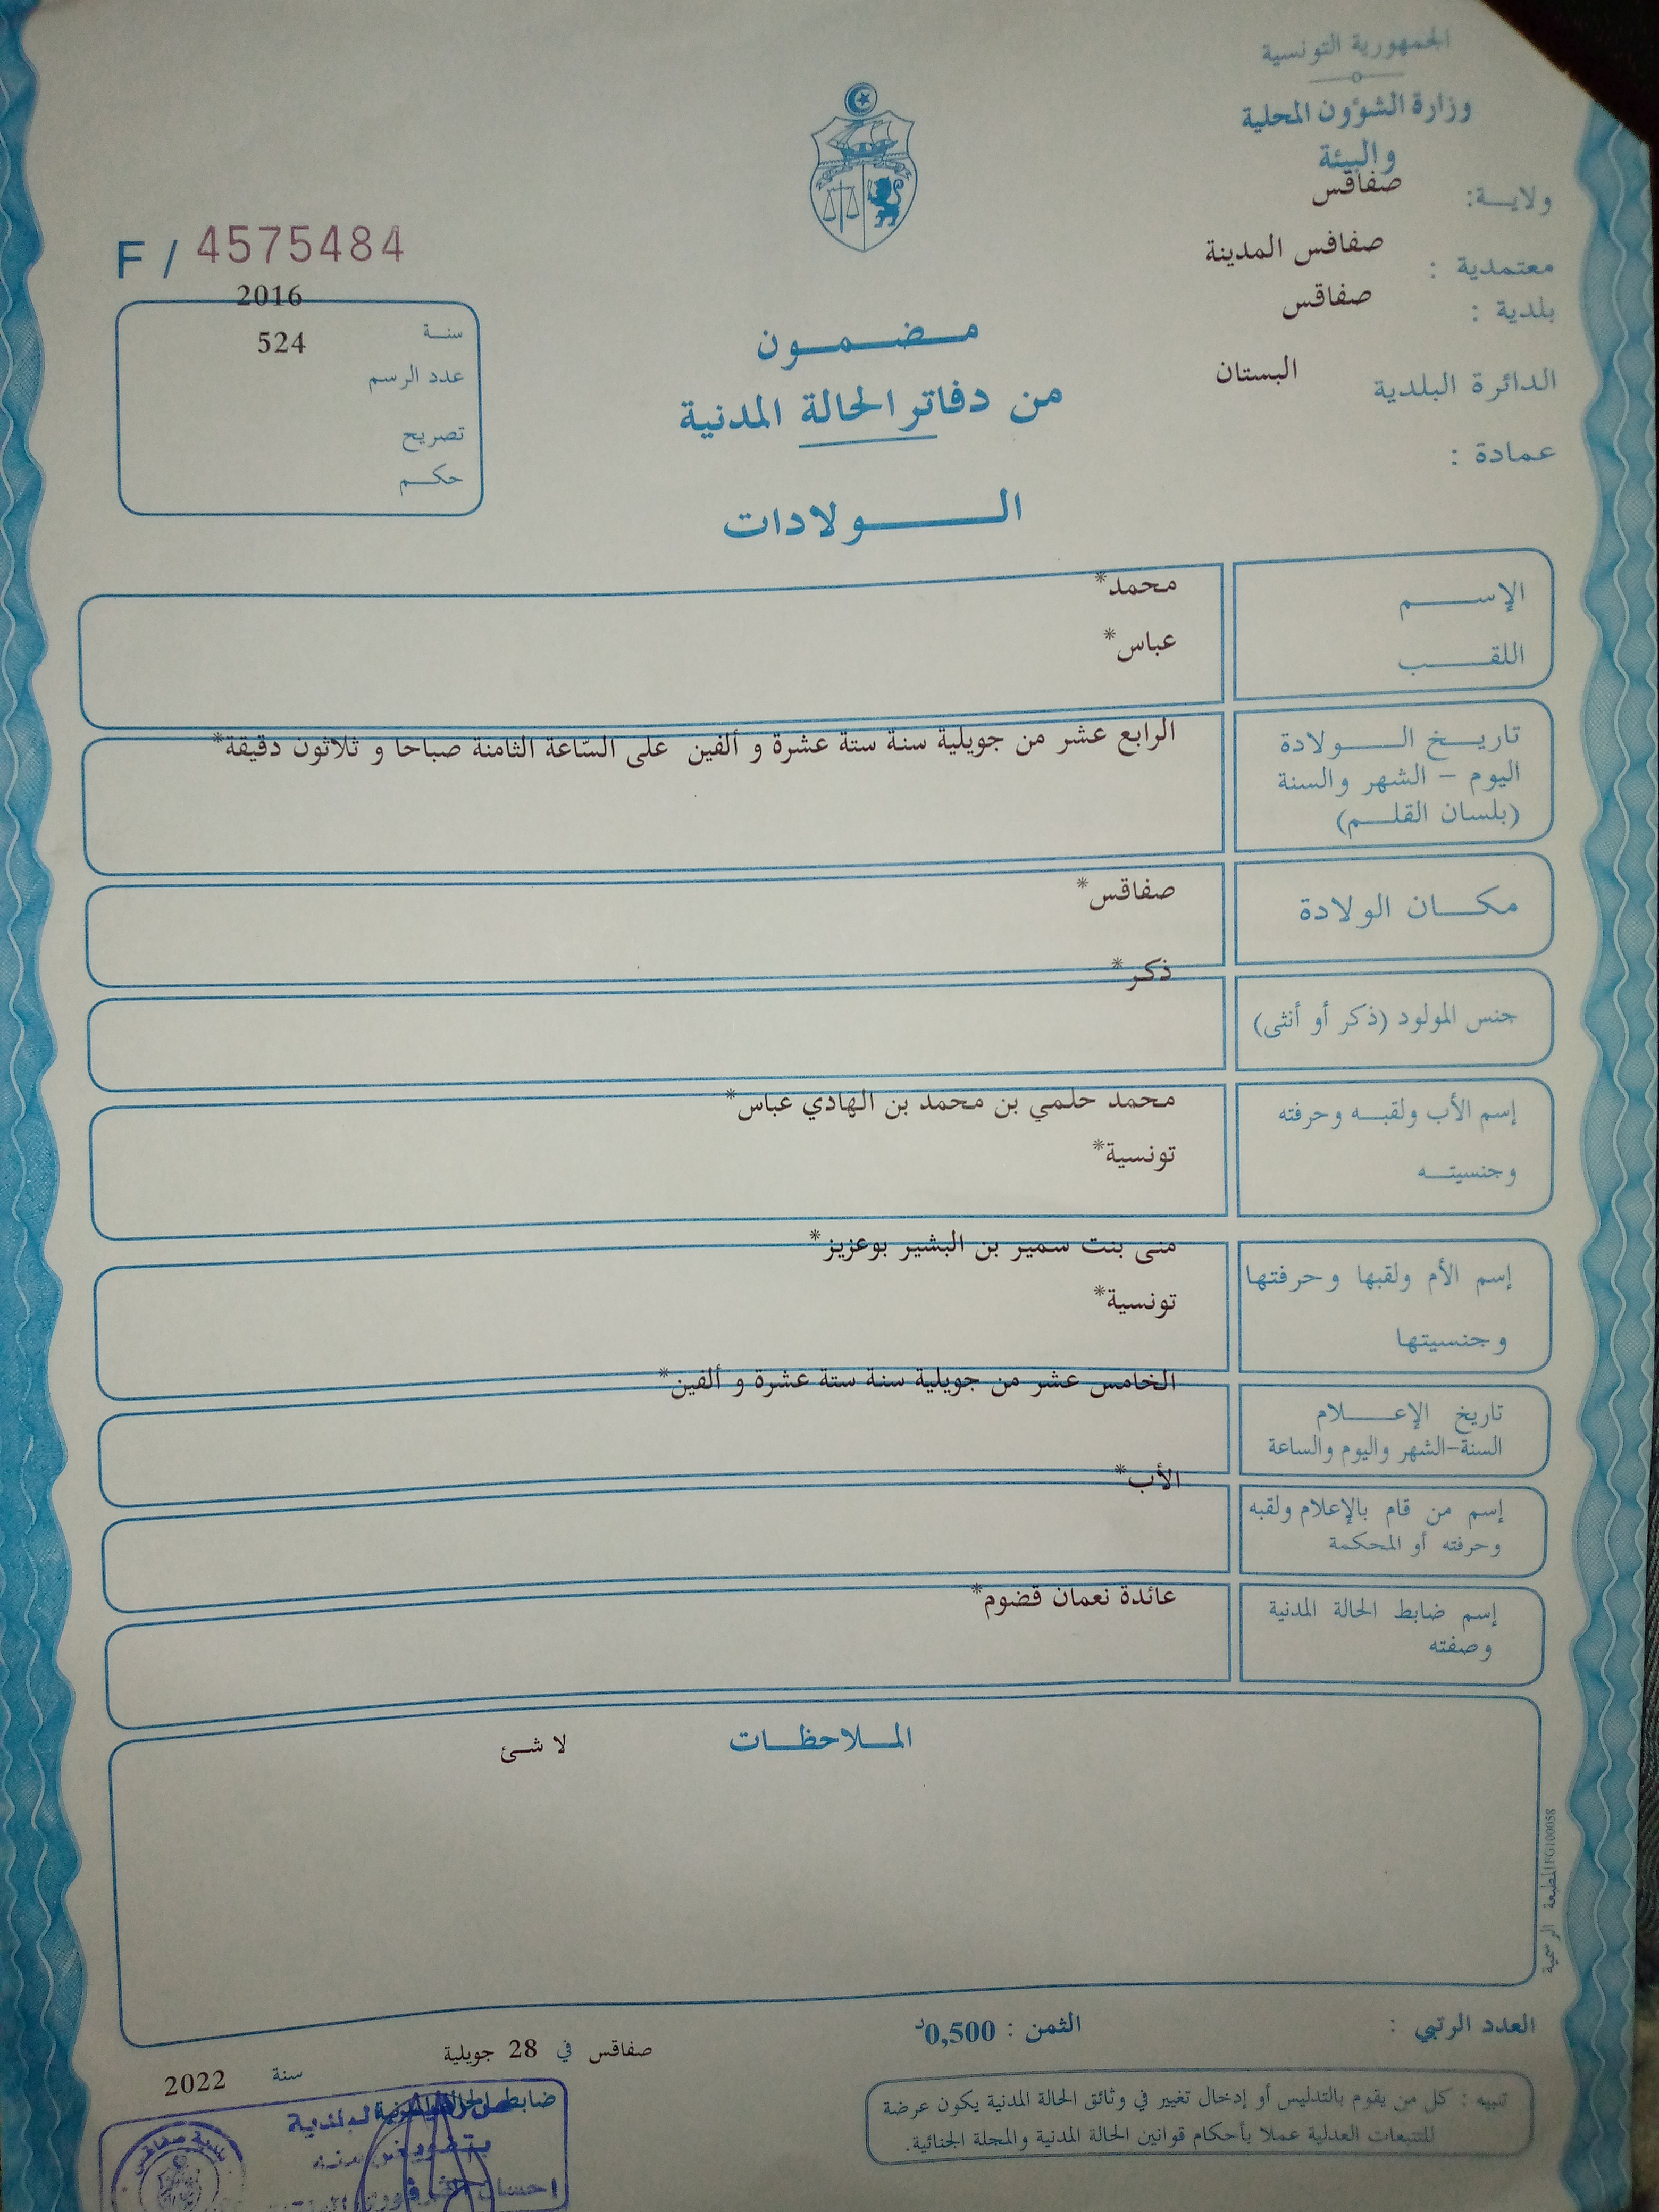 الجمهورية التونسية
وزارة الشؤون المحلية
والبيئة
ولاية: صفاقس
معتمدية : صفاقس المدينة
بلدية : صفاقس
الدائرة البلدية البستان
عمادة :
F / 4575484
سنة 2016
عدد الرسم 524
تصريح
حكم
مضمون
من دفاتر الحالة المدنية
الولادات
الإسم محمد*
اللقب عباس*
تاريخ الولادة الرابع عشر من جويلية سنة ستة عشرة و ألفين على السّاعة الثامنة صباحا و ثلاثون دقيقة*
اليوم - الشهر والسنة
(بلسان القلم)
مكان الولادة صفاقس*
جنس المولود (ذكر أو أنثى) ذكر*
إسم الأب ولقبه وحرفته محمد حلمي بن محمد بن الهادي عباس*
وجنسيته تونسية*
إسم الأم ولقبها وحرفتها منى بنت سمير بن البشير بوعزيز*
وجنسيتها تونسية*
تاريخ الإعلام الخامس عشر من جويلية سنة ستة عشرة و ألفين*
السنة-الشهر واليوم والساعة
إسم من قام بالإعلام ولقبه الأب*
وحرفته أو المحكمة
إسم ضابط الحالة المدنية عائدة نعمان قضوم*
وصفته
الملاحظات لا شئ
المطبعة الرسمية FG100058
العدد الرتبي :
الثمن : 0,500د
صفاقس في 28 جويلية
سنة 2022
تنبيه : كل من يقوم بالتدليس أو إدخال تغيير في وثائق الحالة المدنية يكون عرضة
للتتبعات العدلية عملا بأحكام قوانين الحالة المدنية والمجلة الجنائية.
ضابط الحالة المدنية
بتفويض منه
بلدية صفاقس